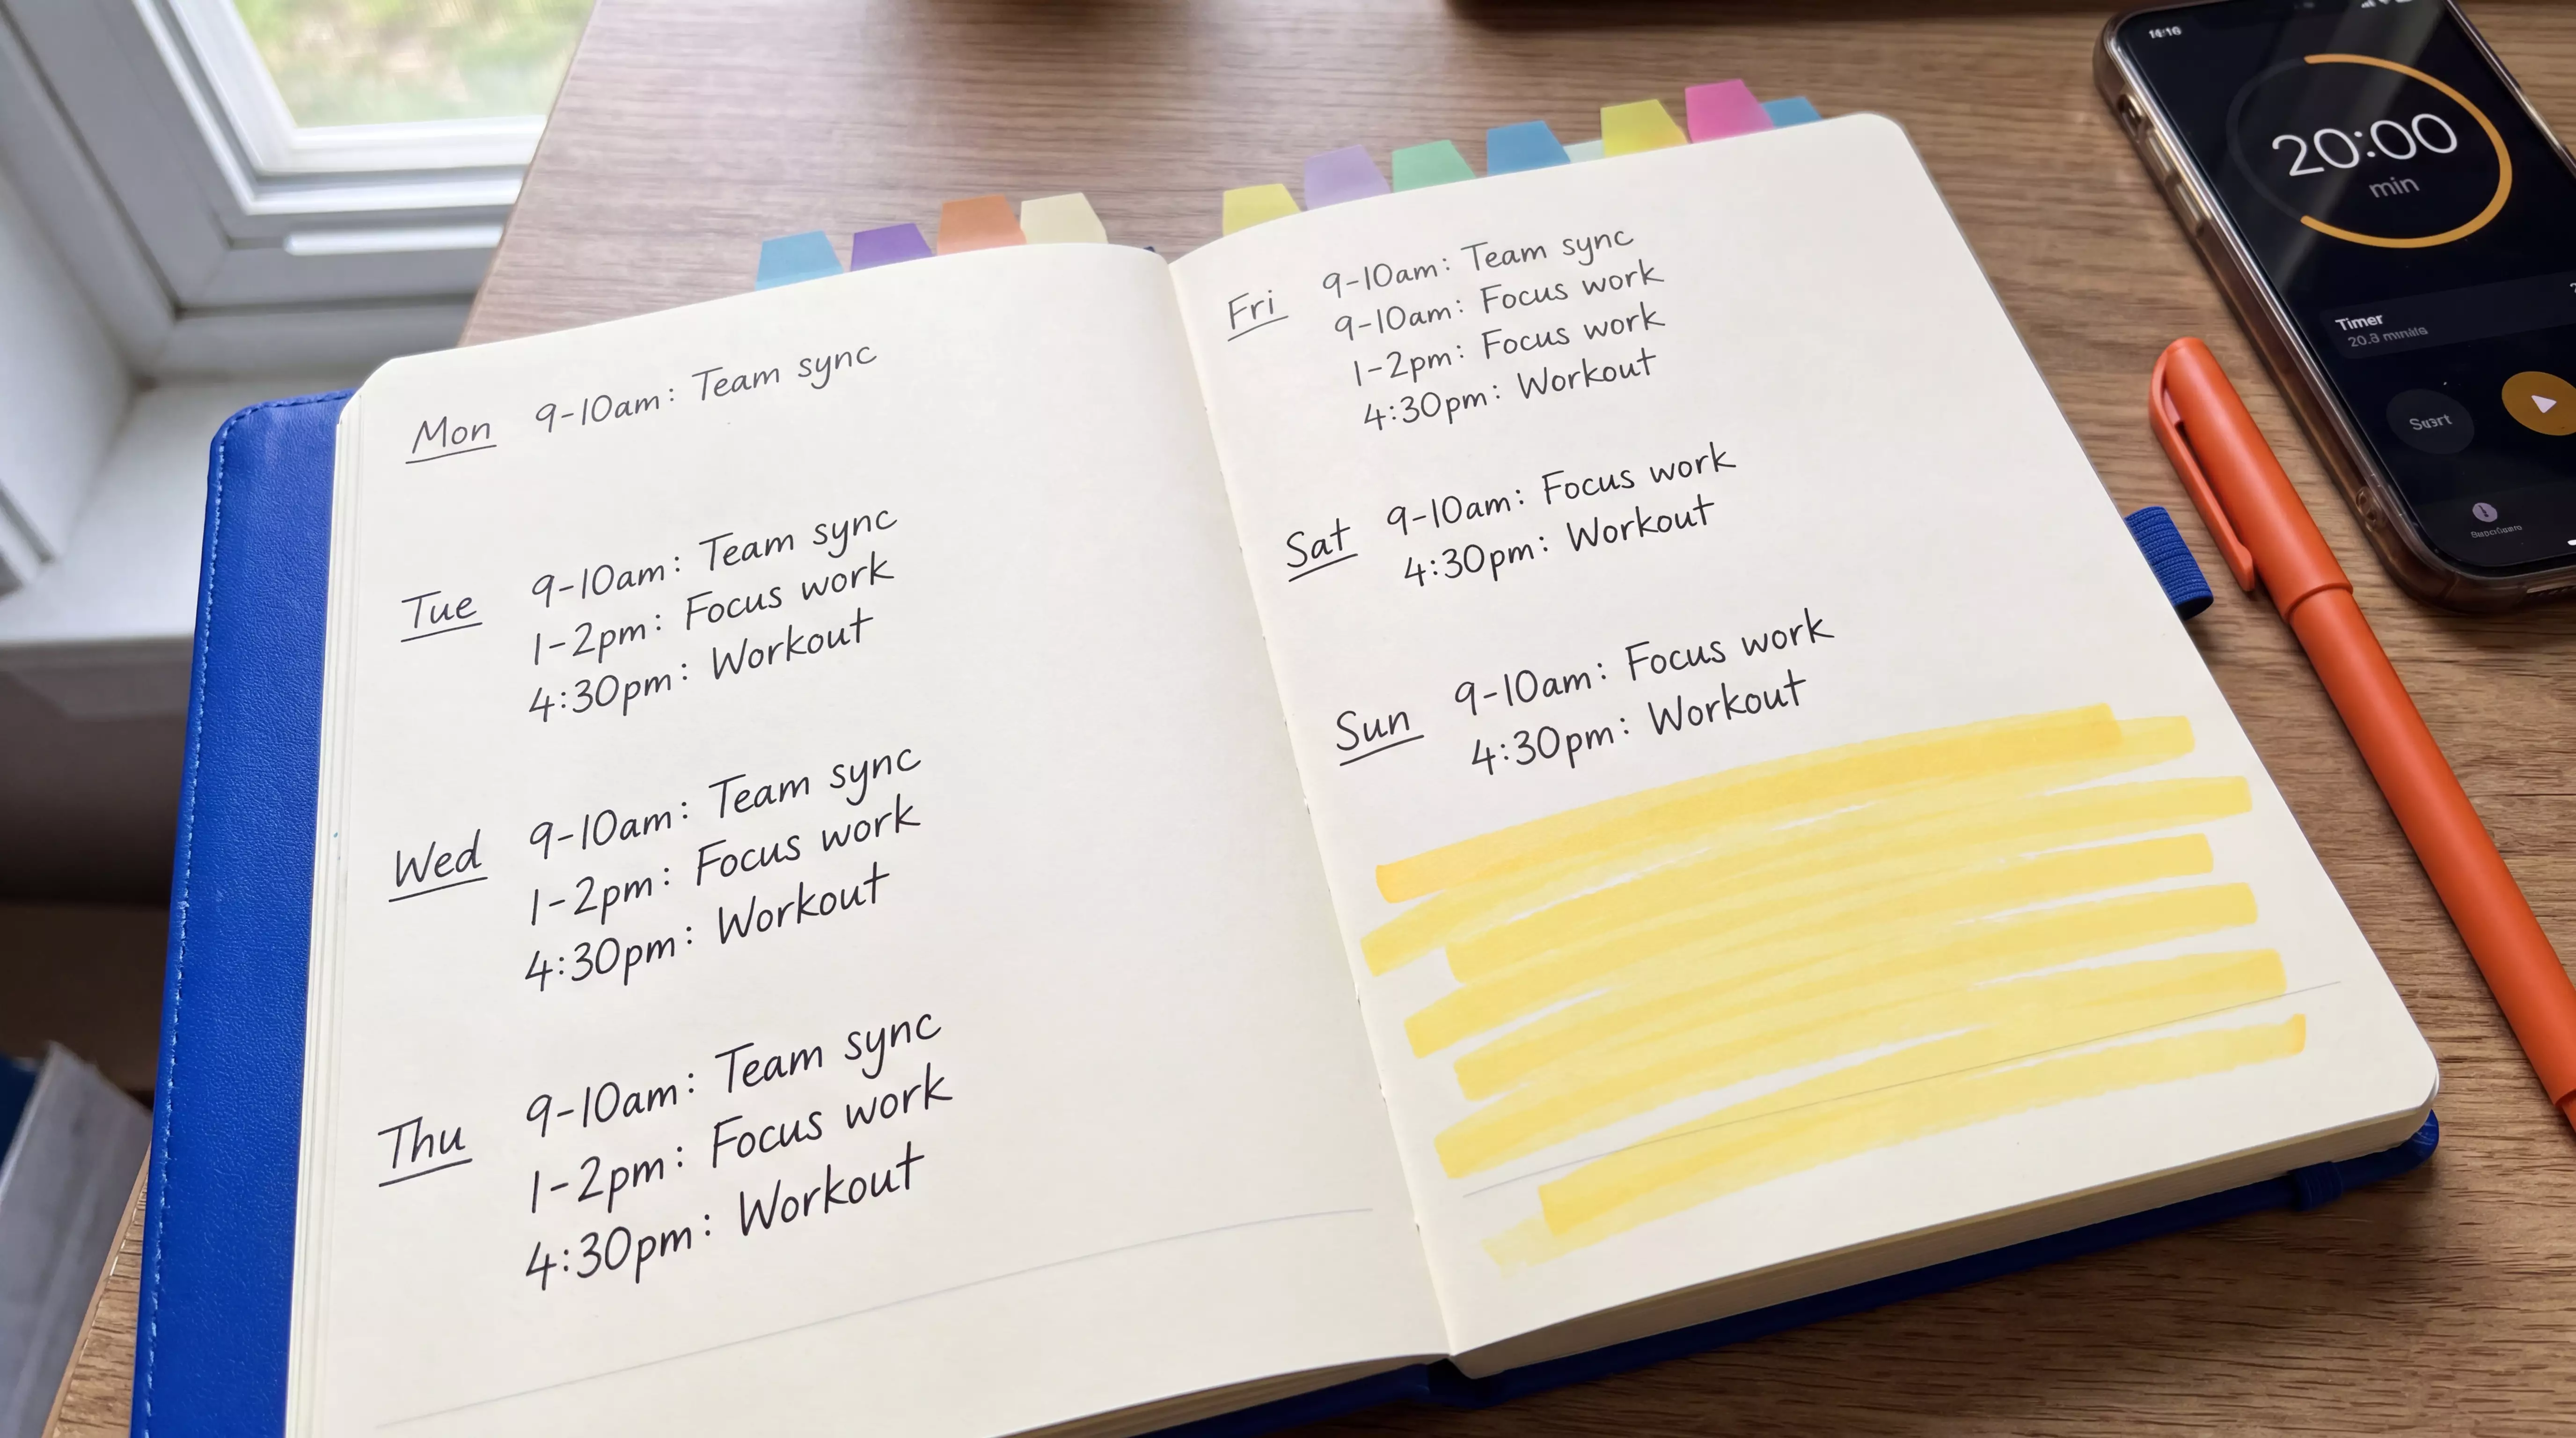 Mon
9-10am: Team sync
Tue
9-10am: Team sync
1-2pm: Focus work
4:30pm: Workout
Wed
9-10am: Team sync
1-2pm: Focus work
4:30pm: Workout
Thu
9-10am: Team sync
1-2pm: Focus work
4:30pm: Workout
Fri
9-10am: Team sync
9-10am: Focus work
1-2pm: Focus work
4:30pm: Workout
Sat
9-10am: Focus work
4:30pm: Workout
Sun
9-10am: Focus work
4:30pm: Workout
20:00
min
Timer